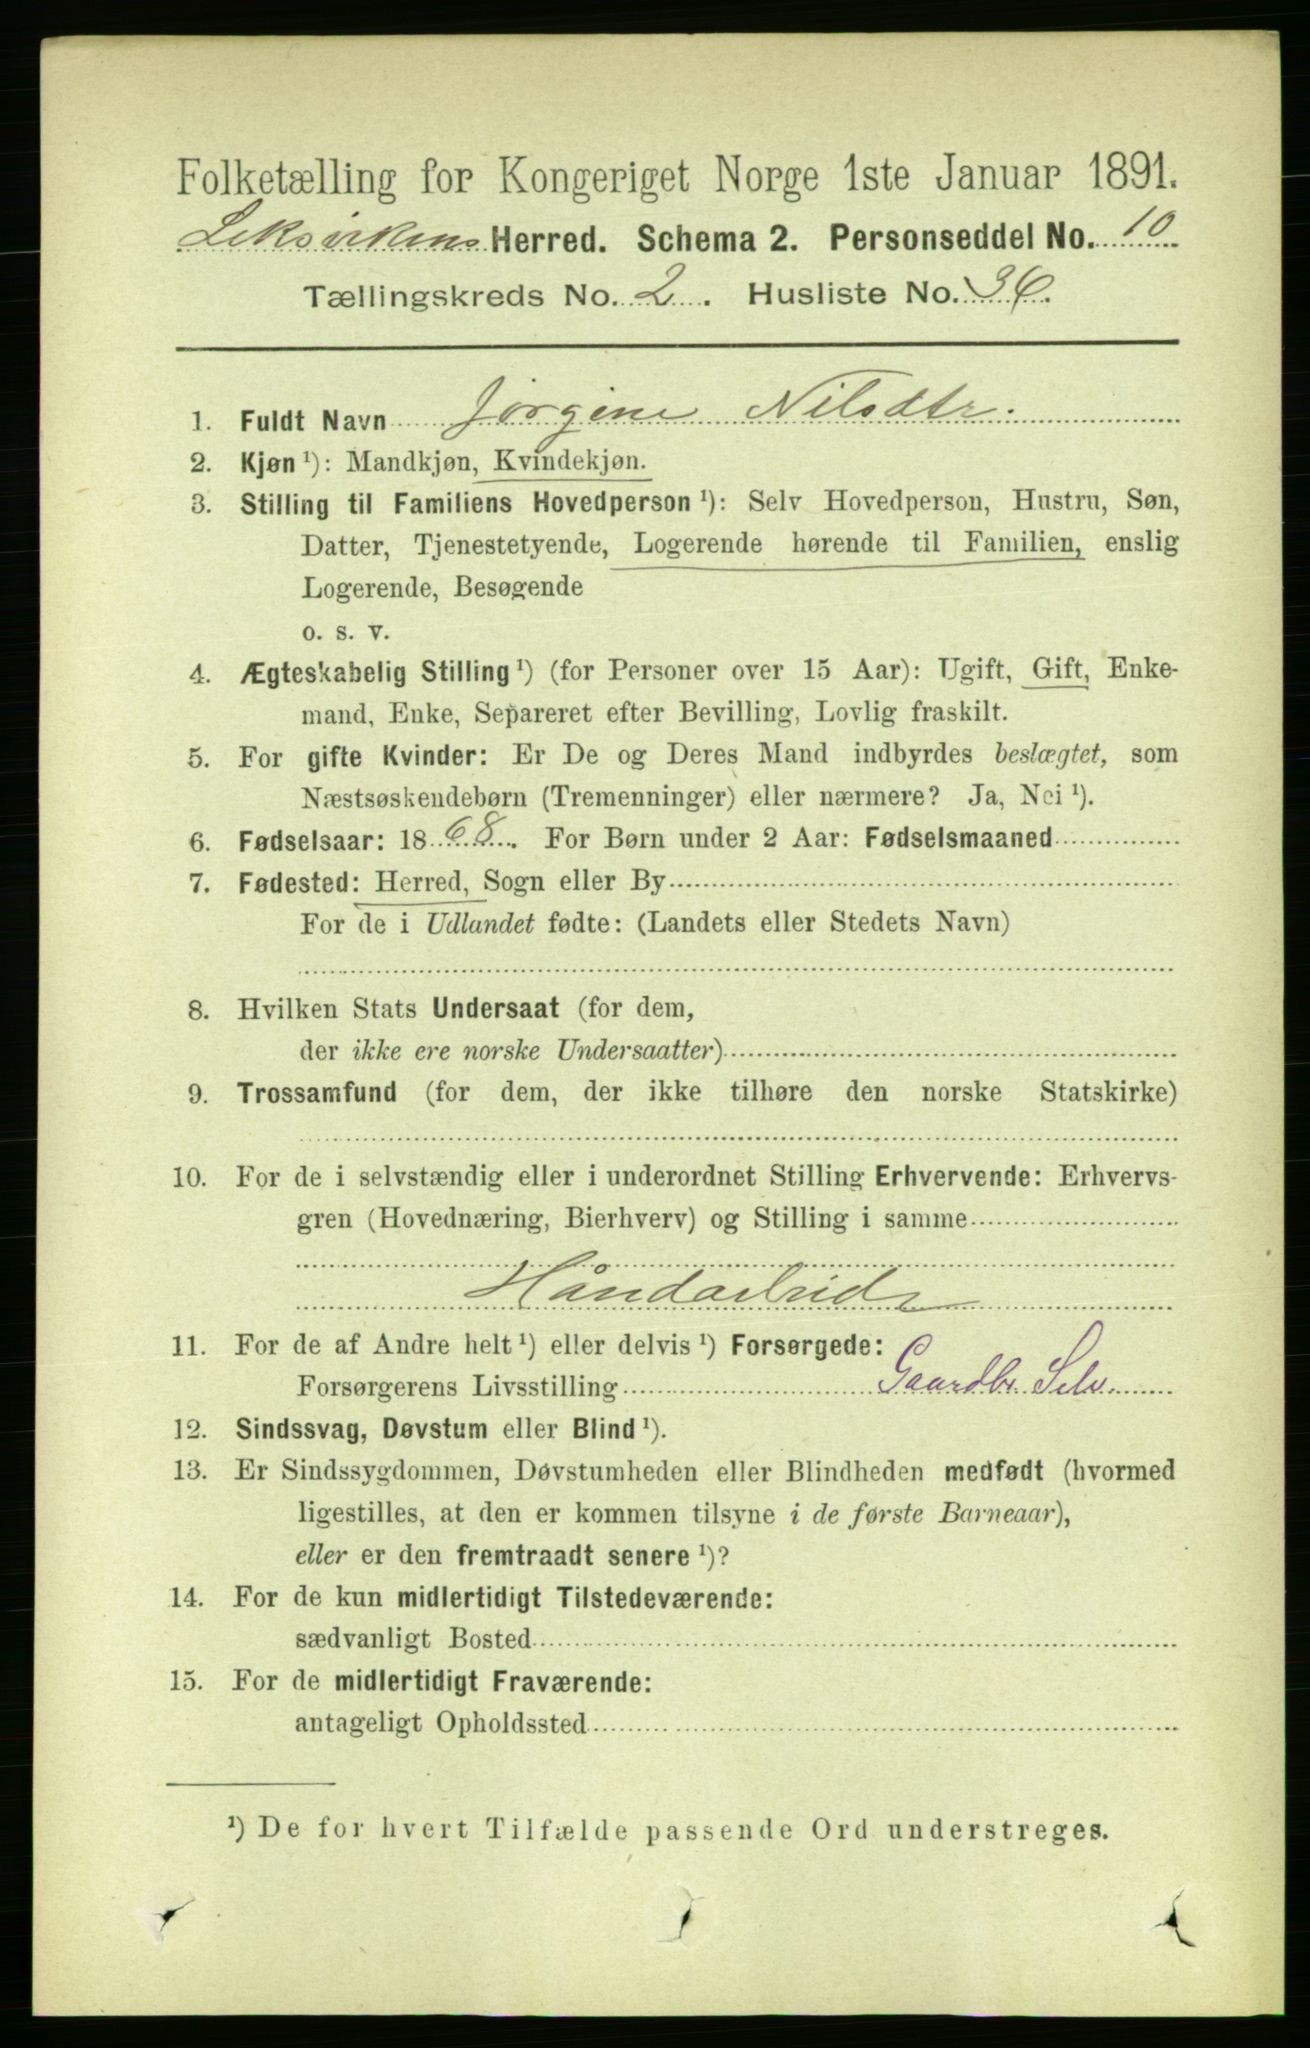 Folketælling for Kongeriget Norge 1ste Januar 1891.
Leksvikens Herred. Schema 2. Personseddel No. 10
Tællingskreds No. 2. Husliste No. 36.
1. Fuldt Navn Jørgine Nilsdtr.
2. Kjøn ¹): Mandkjøn, Kvindekjøn.
3. Stilling til Familiens Hovedperson ¹): Selv Hovedperson, Hustru, Søn,
Datter, Tjenestetyende, Logerende hørende til Familien, enslig
Logerende, Besøgende
o. s. v.
4. Ægteskabelig Stilling ¹) (for Personer over 15 Aar): Ugift, Gift, Enke-
mand, Enke, Separeret efter Bevilling, Lovlig fraskilt.
5. For gifte Kvinder: Er De og Deres Mand indbyrdes beslægtet, som
Næstsøskendebørn (Tremenninger) eller nærmere? Ja, Nei ¹).
6. Fødselsaar: 1868. For Børn under 2 Aar: Fødselsmaaned
7. Fødested: Herred, Sogn eller By
For de i Udlandet fødte: (Landets eller Stedets Navn)
8. Hvilken Stats Undersaat (for dem,
der ikke ere norske Undersaatter)
9. Trossamfund (for dem, der ikke tilhøre den norske Statskirke)
10. For de i selvstændig eller i underordnet Stilling Erhvervende: Erhvervs-
gren (Hovednæring, Bierhverv) og Stilling i samme
Håndarbeide
11. For de af Andre helt ¹) eller delvis ¹) Forsørgede:
Forsørgerens Livsstilling Gaardbr. Selv.
12. Sindssvag, Døvstum eller Blind ¹).
13. Er Sindssygdommen, Døvstumheden eller Blindheden medfødt (hvormed
ligestilles, at den er kommen tilsyne i de første Barneaar),
eller er den fremtraadt senere ¹)?
14. For de kun midlertidigt Tilstedeværende:
sædvanligt Bosted
15. For de midlertidigt Fraværende:
antageligt Opholdssted
¹) De for hvert Tilfælde passende Ord understreges.